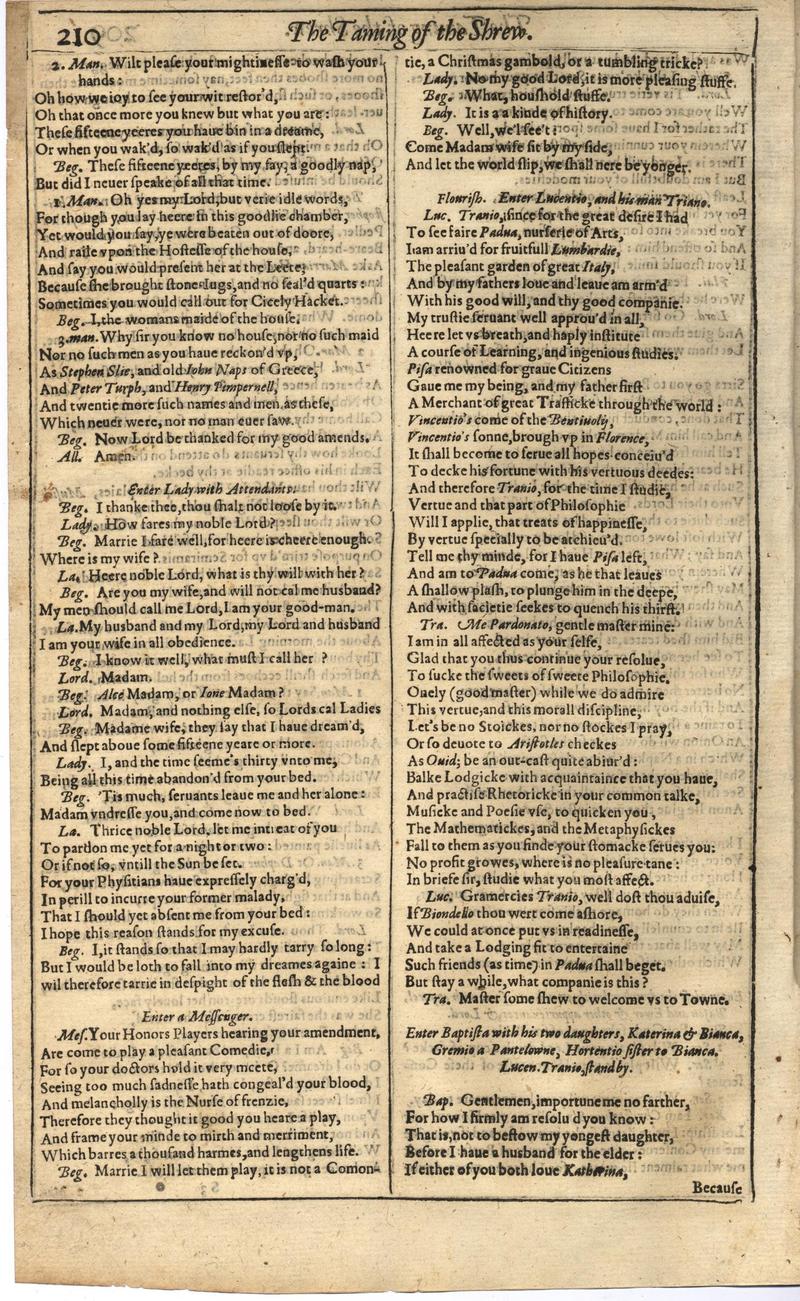 210
The Taming of the Shrew.
2. Man. Wilt pleaſe your mightineſſe to waſh your
hands:
Oh how we ioy to ſee your wit reſtor'd,
Oh that once more you knew but what you are:
Theſe fifteene yeeres you haue bin in a dreame,
Or when you wak'd, ſo wak'd as if you ſlept.
Beg. Theſe fifteene yeeres, by my fay, a goodly nap,
But did I neuer ſpeake of all that time.
1. Man. Oh yes my Lord, but verie idle words,
For though you lay heere in this goodlie chamber,
Yet would you ſay, ye were beaten out of doore,
And raile vpon the Hoſteſſe of the houſe,
And ſay you would preſent her at the Leete,
Becauſe ſhe brought ſtone-Iugs, and no ſeal'd quarts:
Sometimes you would call out for Cicely Hacket.
Beg. I, the womans maide of the houſe.
3. man. Why ſir you know no houſe, nor no ſuch maid
Nor no ſuch men as you haue reckon'd vp,
As Stephen Slie, and old Iohn Naps of Greece,
And Peter Turph, and Henry Pimpernell,
And twentie more ſuch names and men as theſe,
Which neuer were, nor no man euer ſaw.
Beg. Now Lord be thanked for my good amends.
All. Amen.
Enter Lady with Attendants.
Beg. I thanke thee, thou ſhalt not looſe by it.
Lady. How fares my noble Lord?
Beg. Marrie I fare well, for heere is cheere enough.
Where is my wife?
La. Heere noble Lord, what is thy will with her?
Beg. Are you my wife, and will not cal me husband?
My men ſhould call me Lord, I am your good-man.
La. My husband and my Lord, my Lord and husband
I am your wife in all obedience.
Beg. I know it well, what muſt I call her ?
Lord. Madam.
Beg. Alce Madam, or Ione Madam?
Lord. Madam, and nothing elſe, ſo Lords cal Ladies
Beg. Madame wife, they ſay that I haue dream'd,
And ſlept aboue ſome fifteene yeare or more.
Lady. I, and the time ſeeme's thirty vnto me,
Being all this time abandon'd from your bed.
Beg. 'Tis much, ſeruants leaue me and her alone:
Madam vndreſſe you, and come now to bed.
La. Thrice noble Lord, let me intreat of you
To pardon me yet for a night or two:
Or if not ſo, vntill the Sun be ſet.
For your Phyſitians haue expreſſely charg'd,
In perill to incurre your former malady,
That I ſhould yet abſent me from your bed:
I hope this reaſon ſtands for my excuſe.
Beg. I, it ſtands ſo that I may hardly tarry ſo long:
But I would be loth to fall into my dreames againe: I
wil therefore tarrie in deſpight of the fleſh & the blood
Enter a Meſſenger.
Meſ. Your Honors Players hearing your amendment,
Are come to play a pleaſant Comedie,
For ſo your doctors hold it very meete,
Seeing too much ſadneſſe hath congeal'd your blood,
And melancholly is the Nurſe of frenzie,
Therefore they thought it good you heare a play,
And frame your minde to mirth and merriment,
Which barres a thouſand harmes, and lengthens life.
Beg. Marrie I will let them play, it is not a Comon-
tie, a Chriſtmas gambold, or a tumbling tricke?
Lady. No my good Lord, it is more pleaſing ſtuffe.
Beg. What, houſhold ſtuffe.
Lady. It is a a kinde of hiſtory.
Beg. Well, we'l ſee't:
Come Madam wife ſit by my ſide,
And let the world ſlip, we ſhall nere be yonger.
Flouriſh. Enter Lucentio, and his man Triano.
Luc. Tranio, ſince for the great deſire I had
To ſee faire Padua, nurſerie of Arts,
I am arriu'd for fruitfull Lumbardie,
The pleaſant garden of great Italy,
And by my fathers loue and leaue am arm'd
With his good will, and thy good companie.
My truſtie ſeruant well approu'd in all,
Heere let vs breath, and haply inſtitute
A courſe of Learning, and ingenious ſtudies.
Piſa renowned for graue Citizens
Gaue me my being, and my father firſt
A Merchant of great Trafficke through the world:
Vincentio's come of the Bentiuolij,
Vincentio's ſonne, brough vp in Florence,
It ſhall become to ſerue all hopes conceiu'd
To decke his fortune with his vertuous deedes:
And therefore Tranio, for the time I ſtudie,
Vertue and that part of Philoſophie
Will I applie, that treats of happineſſe,
By vertue ſpecially to be atchieu'd.
Tell me thy minde, for I haue Piſa left,
And am to Padua come, as he that leaues
A ſhallow plaſh, to plunge him in the deepe,
And with ſacietie ſeekes to quench his thirſt.
Tra. Me Pardonato, gentle maſter mine:
I am in all affected as your ſelfe,
Glad that you thus continue your reſolue,
To ſucke the ſweets of ſweete Philoſophie.
Onely (good maſter) while we do admire
This vertue, and this morall diſcipline,
Let's be no Stoickes, nor no ſtockes I pray,
Or ſo deuote to Ariſtotles checkes
As Ouid; be an out-caſt quite abiur'd:
Balke Lodgicke with acquaintaince that you haue,
And practiſe Rhetoricke in your common talke,
Muſicke and Poeſie vſe, to quicken you,
The Mathematickes, and the Metaphyſickes
Fall to them as you finde your ſtomacke ſerues you:
No profit growes, where is no pleaſure tane:
In briefe ſir, ſtudie what you moſt affect.
Luc. Gramercies Tranio, well doſt thou aduiſe,
If Biondello thou wert come aſhore,
We could at once put vs in readineſſe,
And take a Lodging fit to entertaine
Such friends (as time) in Padua ſhall beget.
But ſtay a while, what companie is this?
Tra. Maſter ſome ſhew to welcome vs to Towne.
Enter Baptiſta with his two daughters, Katerina & Bianca,
Gremio a Pantelowne, Hortentio ſiſter to Bianca.
Lucen. Tranio, ſtand by.
Bap. Gentlemen, importune me no farther,
For how I firmly am reſolu d you know:
That is, not to beſtow my yongeſt daughter,
Before I haue a husband for the elder:
If either of you both loue Katherina,
Becauſe